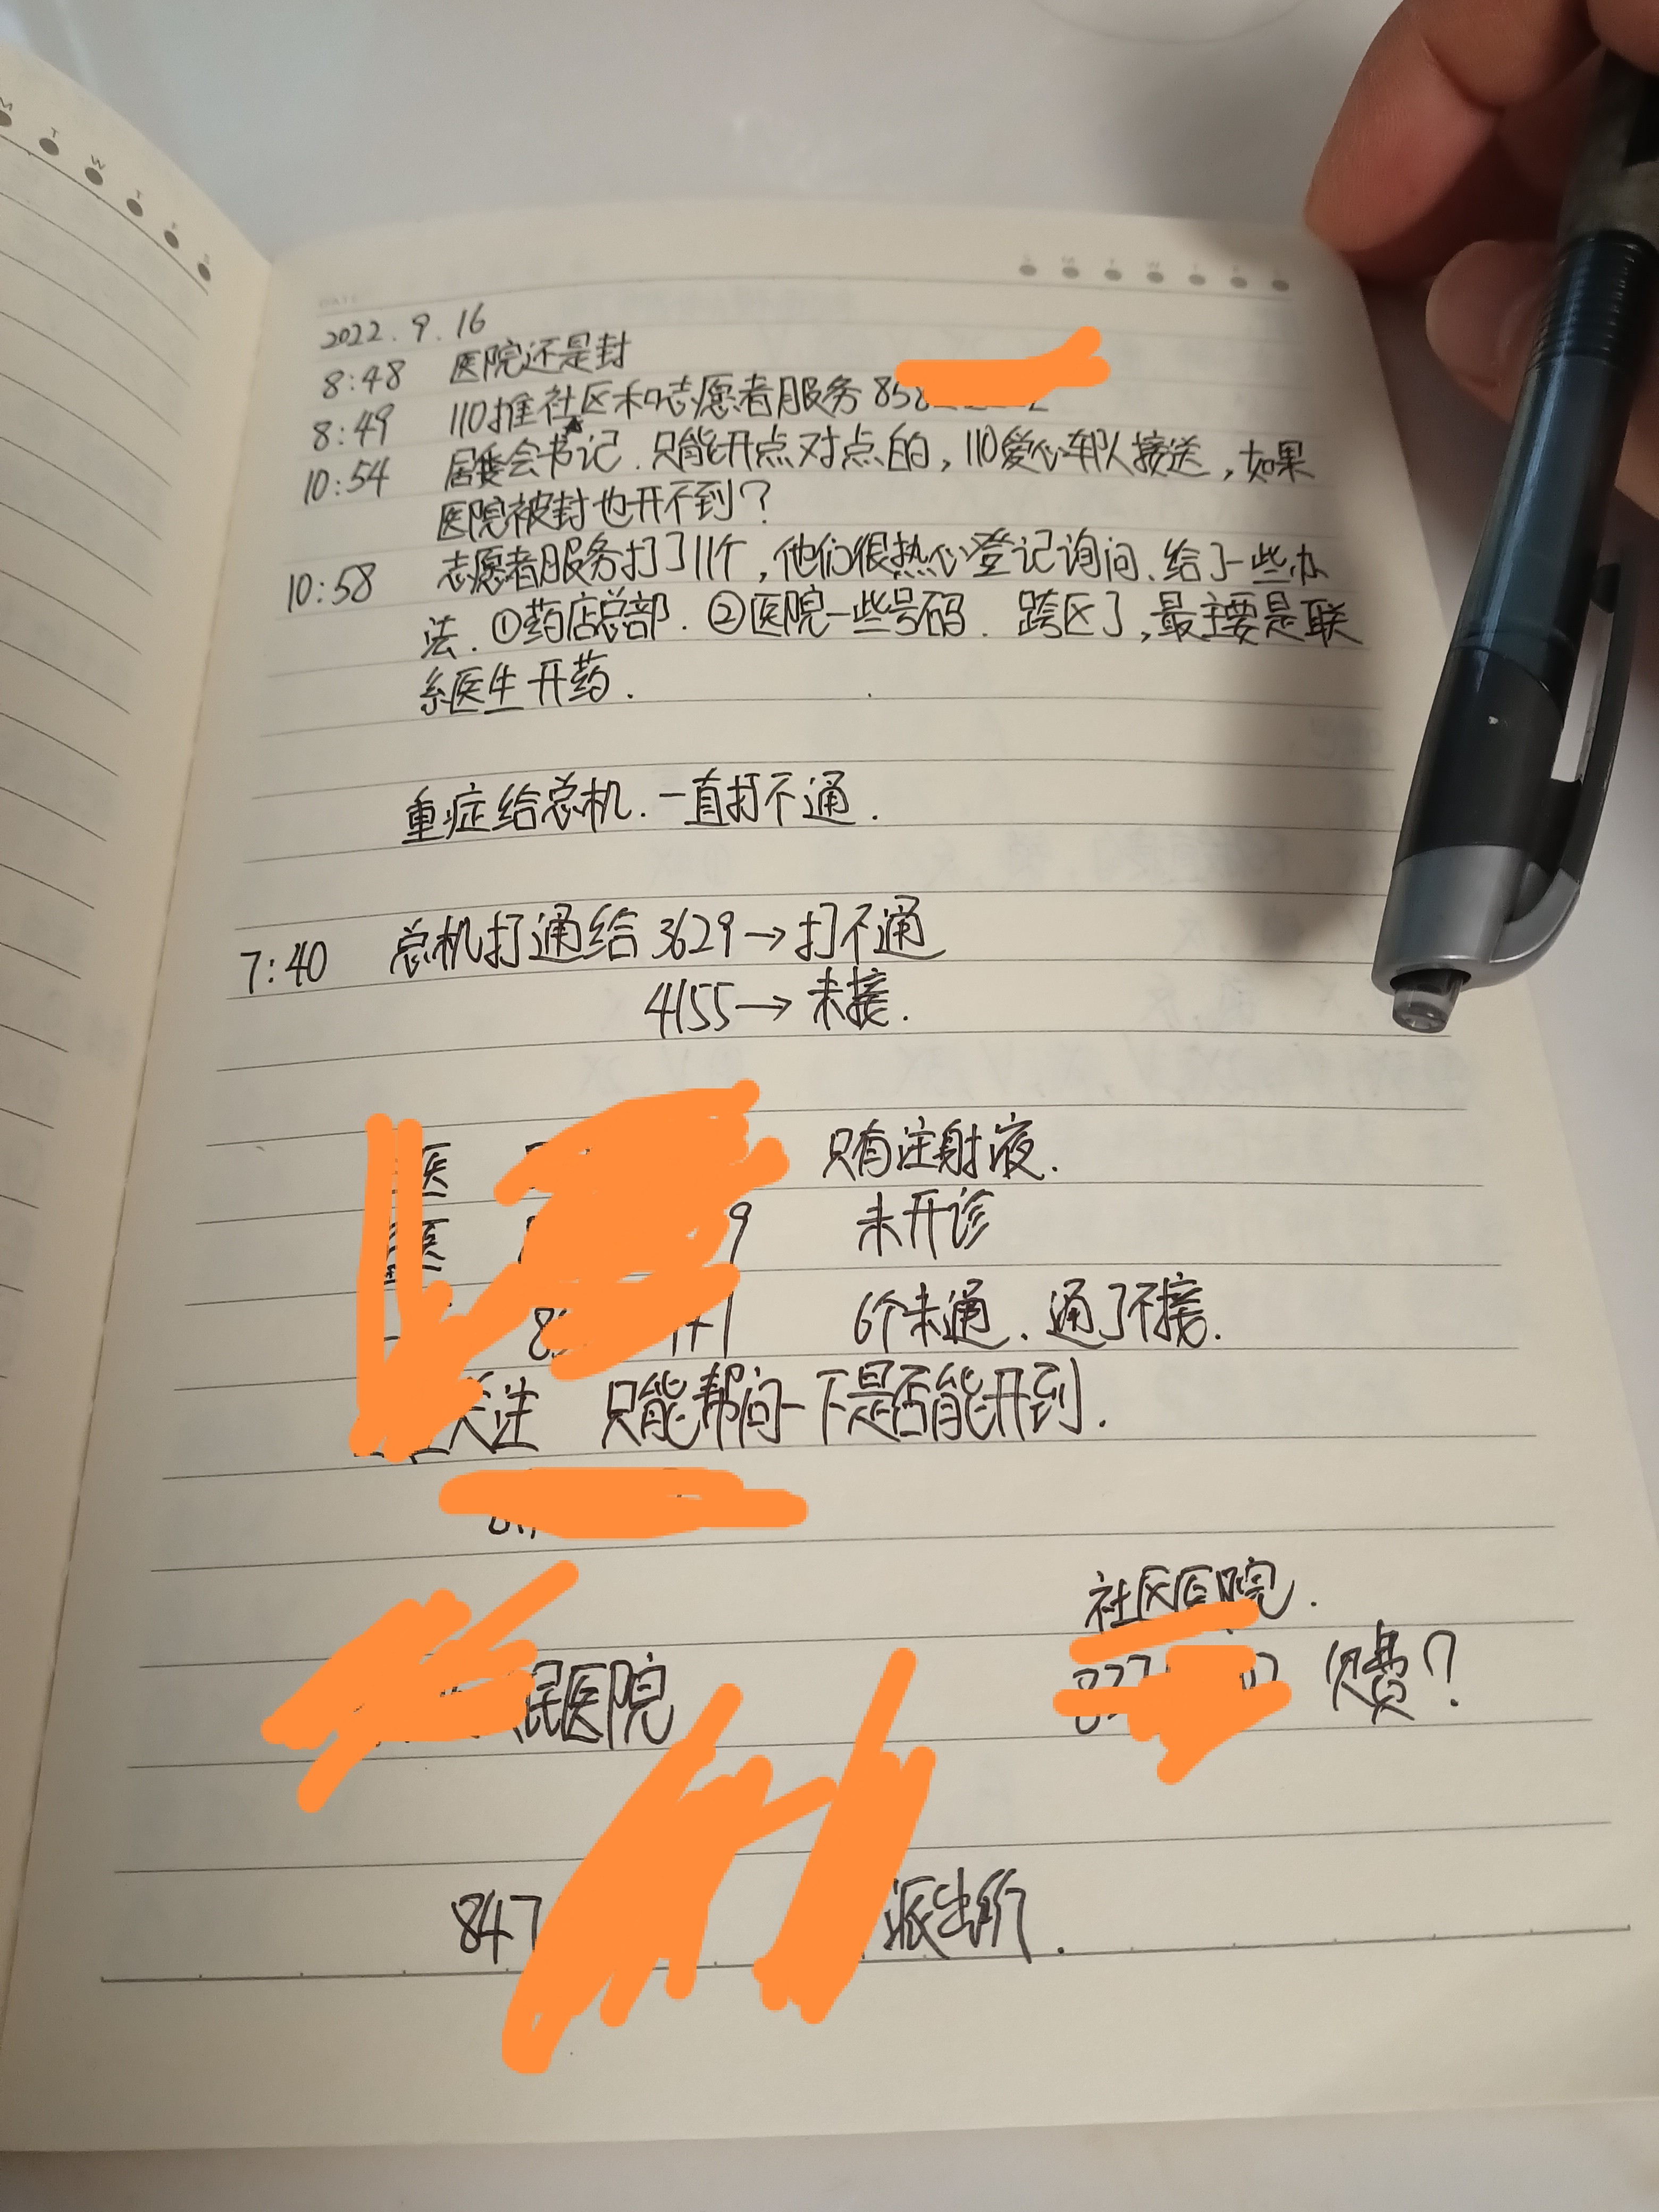 2022.9.16
8:48 医院还是封
8:49 110推社区和志愿者服务 858
10:54 居委会书记.只能开点对点的,110爱心车队接送,如果
医院被封也开不到?
10:58 志愿者服务打了11个,他们很热心登记询问.给了一些办
法.①药店总部.②医院一些号码.跨区了,最主要是联
系医生开药.
重症给总机.一直打不通.
7:40 总机打通给3629→打不通
4155→未接.
医 只有注射液.
医 9 未开诊
8 6个未通.通了不接.
关注 只能帮问一下是否能开到.
社区医院.
民医院
827 欠费?
847 派出所.